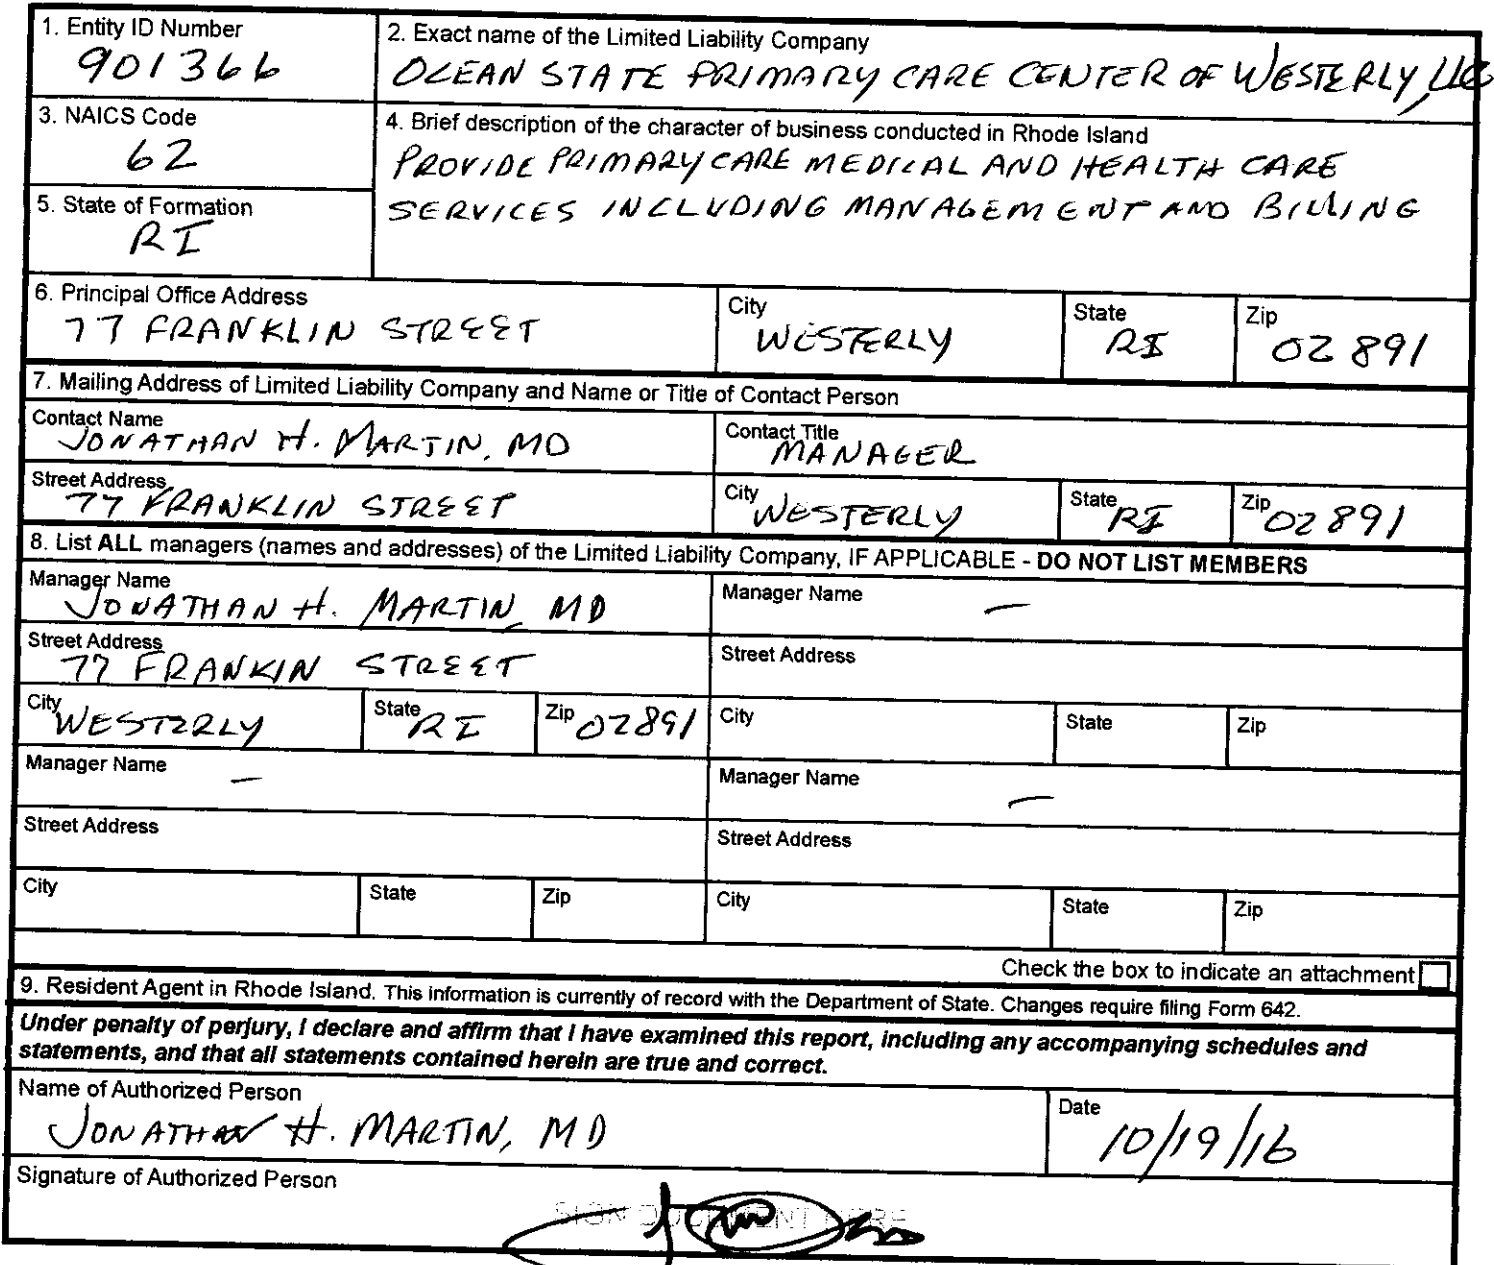 1. Entity ID Number
901366
2. Exact name of the Limited Liability Company
OCEAN STATE PRIMARY CARE CENTER OF WESTERLY, LLC
3. NAICS Code
62
4. Brief description of the character of business conducted in Rhode Island
PROVIDE PRIMARY CARE MEDICAL AND HEALTH CARE
SERVICES INCLUDING MANAGEMENT AND BILLING
5. State of Formation
RI
6. Principal Office Address
77 FRANKLIN STREET
City
WESTERLY
State
RI
Zip
02891
7. Mailing Address of Limited Liability Company and Name or Title of Contact Person
Contact Name
JONATHAN H. MARTIN, MD
Contact Title
MANAGER
Street Address
77 FRANKLIN STREET
City
WESTERLY
State
RI
Zip
02891
8. List ALL managers (names and addresses) of the Limited Liability Company, IF APPLICABLE - DO NOT LIST MEMBERS
Manager Name
JONATHAN H. MARTIN, MD
Manager Name
—
Street Address
77 FRANKIN STREET
Street Address
City
WESTERLY
State
RI
Zip
02891
City
State
Zip
Manager Name
—
Manager Name
—
Street Address
Street Address
City
State
Zip
City
State
Zip
Check the box to indicate an attachment
9. Resident Agent in Rhode Island. This information is currently of record with the Department of State. Changes require filing Form 642.
Under penalty of perjury, I declare and affirm that I have examined this report, including any accompanying schedules and
statements, and that all statements contained herein are true and correct.
Name of Authorized Person
JONATHAN H. MARTIN, MD
Date
10/19/16
Signature of Authorized Person
SIGN DOCUMENT HERE